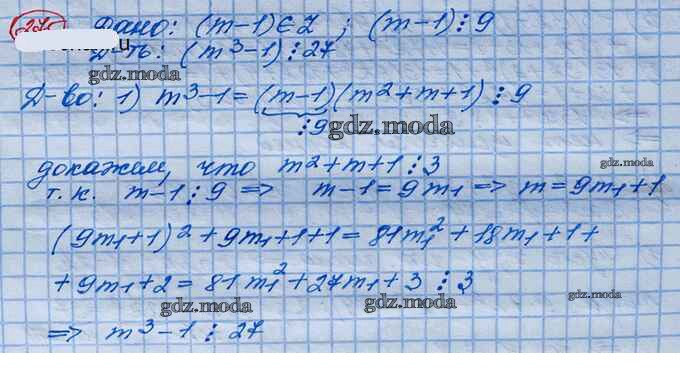 Дано: (m-1)∈Z ; (m-1)⋮9
Д-ть: (m³-1)⋮27
gdz.moda
Д-во: 1) m³-1=(m-1)(m²+m+1)⋮9
⋮9
gdz.moda
докажем, что m²+m+1⋮3
gdz.moda
т.к. m-1⋮9 => m-1=9m₁ => m=9m₁+1
(9m₁+1)²+9m₁+1+1=81m₁²+18m₁+1+
+9m₁+2=81m₁²+27m₁+3⋮3
gdz.moda
gdz.moda
gdz.moda
=> m³-1⋮27